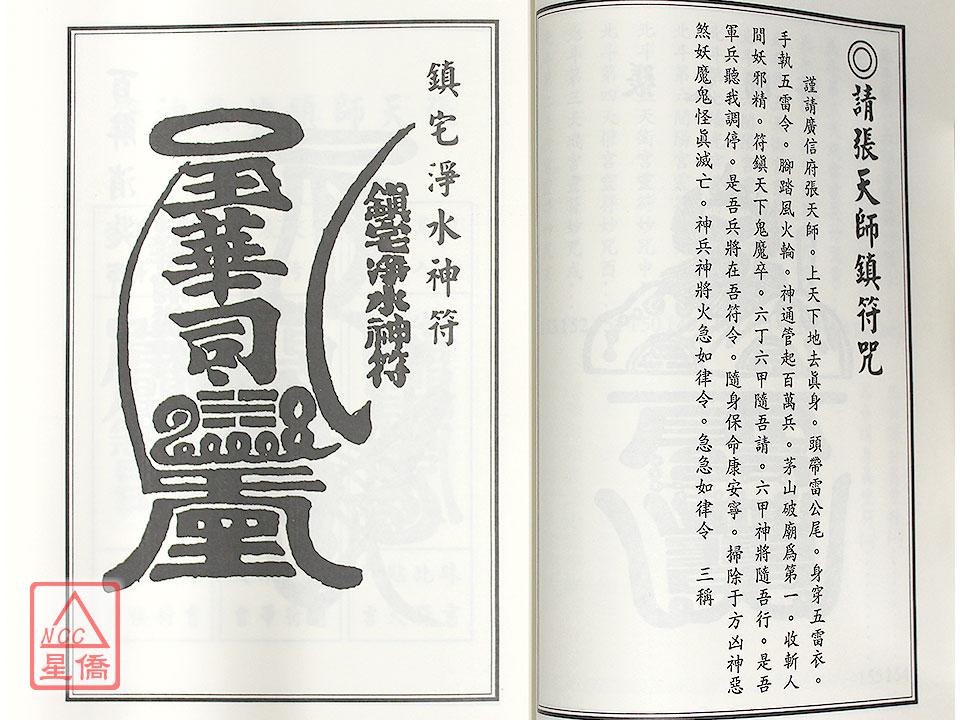 ◎請張天師鎮符咒
謹請廣信府張天師。上天下地去眞身。頭帶雷公尾。身穿五雷衣。
手執五雷令。腳踏風火輪。神通管起百萬兵。茅山破廟爲第一。收斬人
間妖邪精。符鎭天下鬼魔卒。六丁六甲隨吾請。六甲神將隨吾行。是吾
軍兵聽我調停。是吾兵將在吾符令。隨身保命康安寧。掃除于方凶神惡
煞妖魔鬼怪眞滅亡。神兵神將火急如律令。急急如律令 三稱
鎮宅淨水神符
鎮宅淨水神符
華司
NCC
星僑